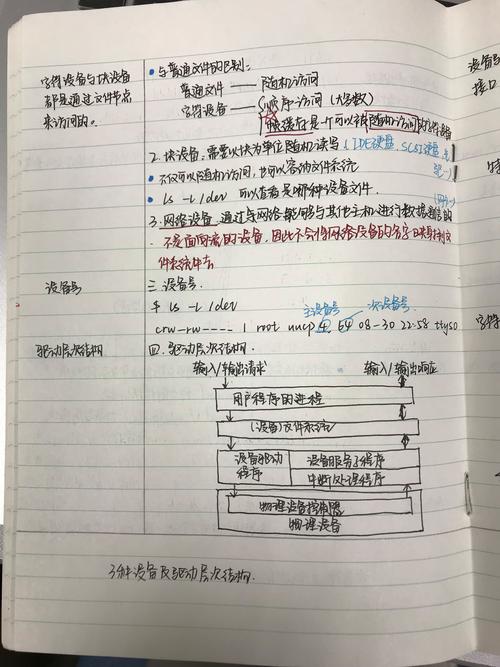 字符设备与块设备
都是通过文件节点
来访问的。
• 与普通文件的区别:
普通文件 —— 随机访问
字符设备 —— 顺序访问 (大多数)
帧缓存是一个可以被随机访问的字符设备
2. 块设备: 需要以块为单位随机读写 (IDE硬盘、SCSI硬盘、光
• 不仅可以随机访问, 也可以容纳文件系统
• ls -l /dev 可以查看是哪种设备文件.
3. 网络设备. 通过与网络能够与其他主机进行数据通信的
• 不是面向流的设备, 因此不会将网络设备的名字映射到文
件系统中去
设备号
三. 设备号.
# ls -l /dev
主设备号 次设备号
crw-rw---- 1 root uucp 4, 64 08-30 22:58 ttyS0
驱动层次结构
四. 驱动层次结构.
输入/输出请求 输入/输出响应
用户程序的进程
(设备)文件系统
设备驱动
程序
设备服务子程序
中断处理程序
物理设备控制器
物理设备
3种设备及驱动层次结构.
设备号
接口
特
字符